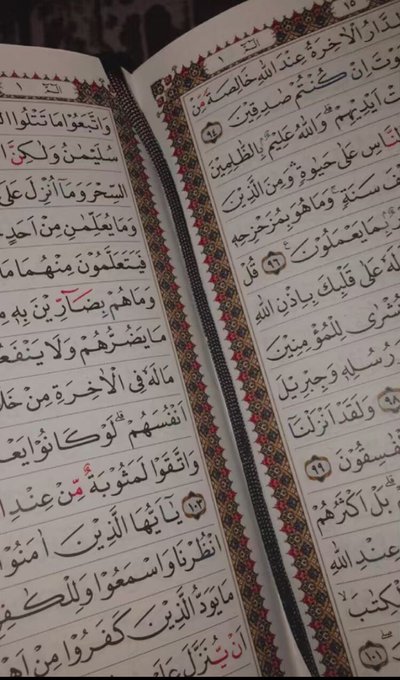 ١٥ الٓمّٓ ١
الدَّارُ الْاٰخِرَةُ عِنْدَ اللّٰهِ خَالِصَةً مِّنْ
اِنْ كُنْتُمْ صٰدِقِيْنَ ٩٤
اَيْدِيْهِمْ ۗ وَاللّٰهُ عَلِيْمٌۢ بِالظّٰلِمِيْنَ
النَّاسِ عَلٰى حَيٰوةٍ ۛ وَمِنَ الَّذِيْنَ
سَنَةٍ ۚ وَمَا هُوَ بِمُزَحْزِحِهٖ
بِمَا يَعْمَلُوْنَ ٩٦ قُلْ
عَلٰى قَلْبِكَ بِاِذْنِ اللّٰهِ
بُشْرٰى لِلْمُؤْمِنِيْنَ
رُسُلِهٖ وَجِبْرِيْلَ
٩٨ وَلَقَدْ اَنْزَلْنَآ
الْفٰسِقُوْنَ ٩٩
بَلْ اَكْثَرُهُمْ
عِنْدِ اللّٰهِ
الْكِتٰبَ
١٠١
الٓمّٓ ١
وَاتَّبَعُوْا مَا تَتْلُوا
سُلَيْمٰنُ وَلٰكِنَّ
السِّحْرَ وَمَآ اُنْزِلَ عَلَى
وَمَا يُعَلِّمٰنِ مِنْ اَحَدٍ
فَيَتَعَلَّمُوْنَ مِنْهُمَا مَا
وَمَا هُمْ بِضَآرِّيْنَ بِهٖ
مَا يَضُرُّهُمْ وَلَا
مَا لَهٗ فِى الْاٰخِرَةِ مِنْ
اَنْفُسَهُمْ ۗ لَوْ كَانُوْا
وَاتَّقَوْا لَمَثُوْبَةٌ مِّنْ عِنْدِ
١٠٣ يٰٓاَيُّهَا الَّذِيْنَ اٰمَنُوْا
انْظُرْنَا وَاسْمَعُوْا
مَا يَوَدُّ الَّذِيْنَ كَفَرُوْا مِنْ
اَنْ يُّنَزَّلَ